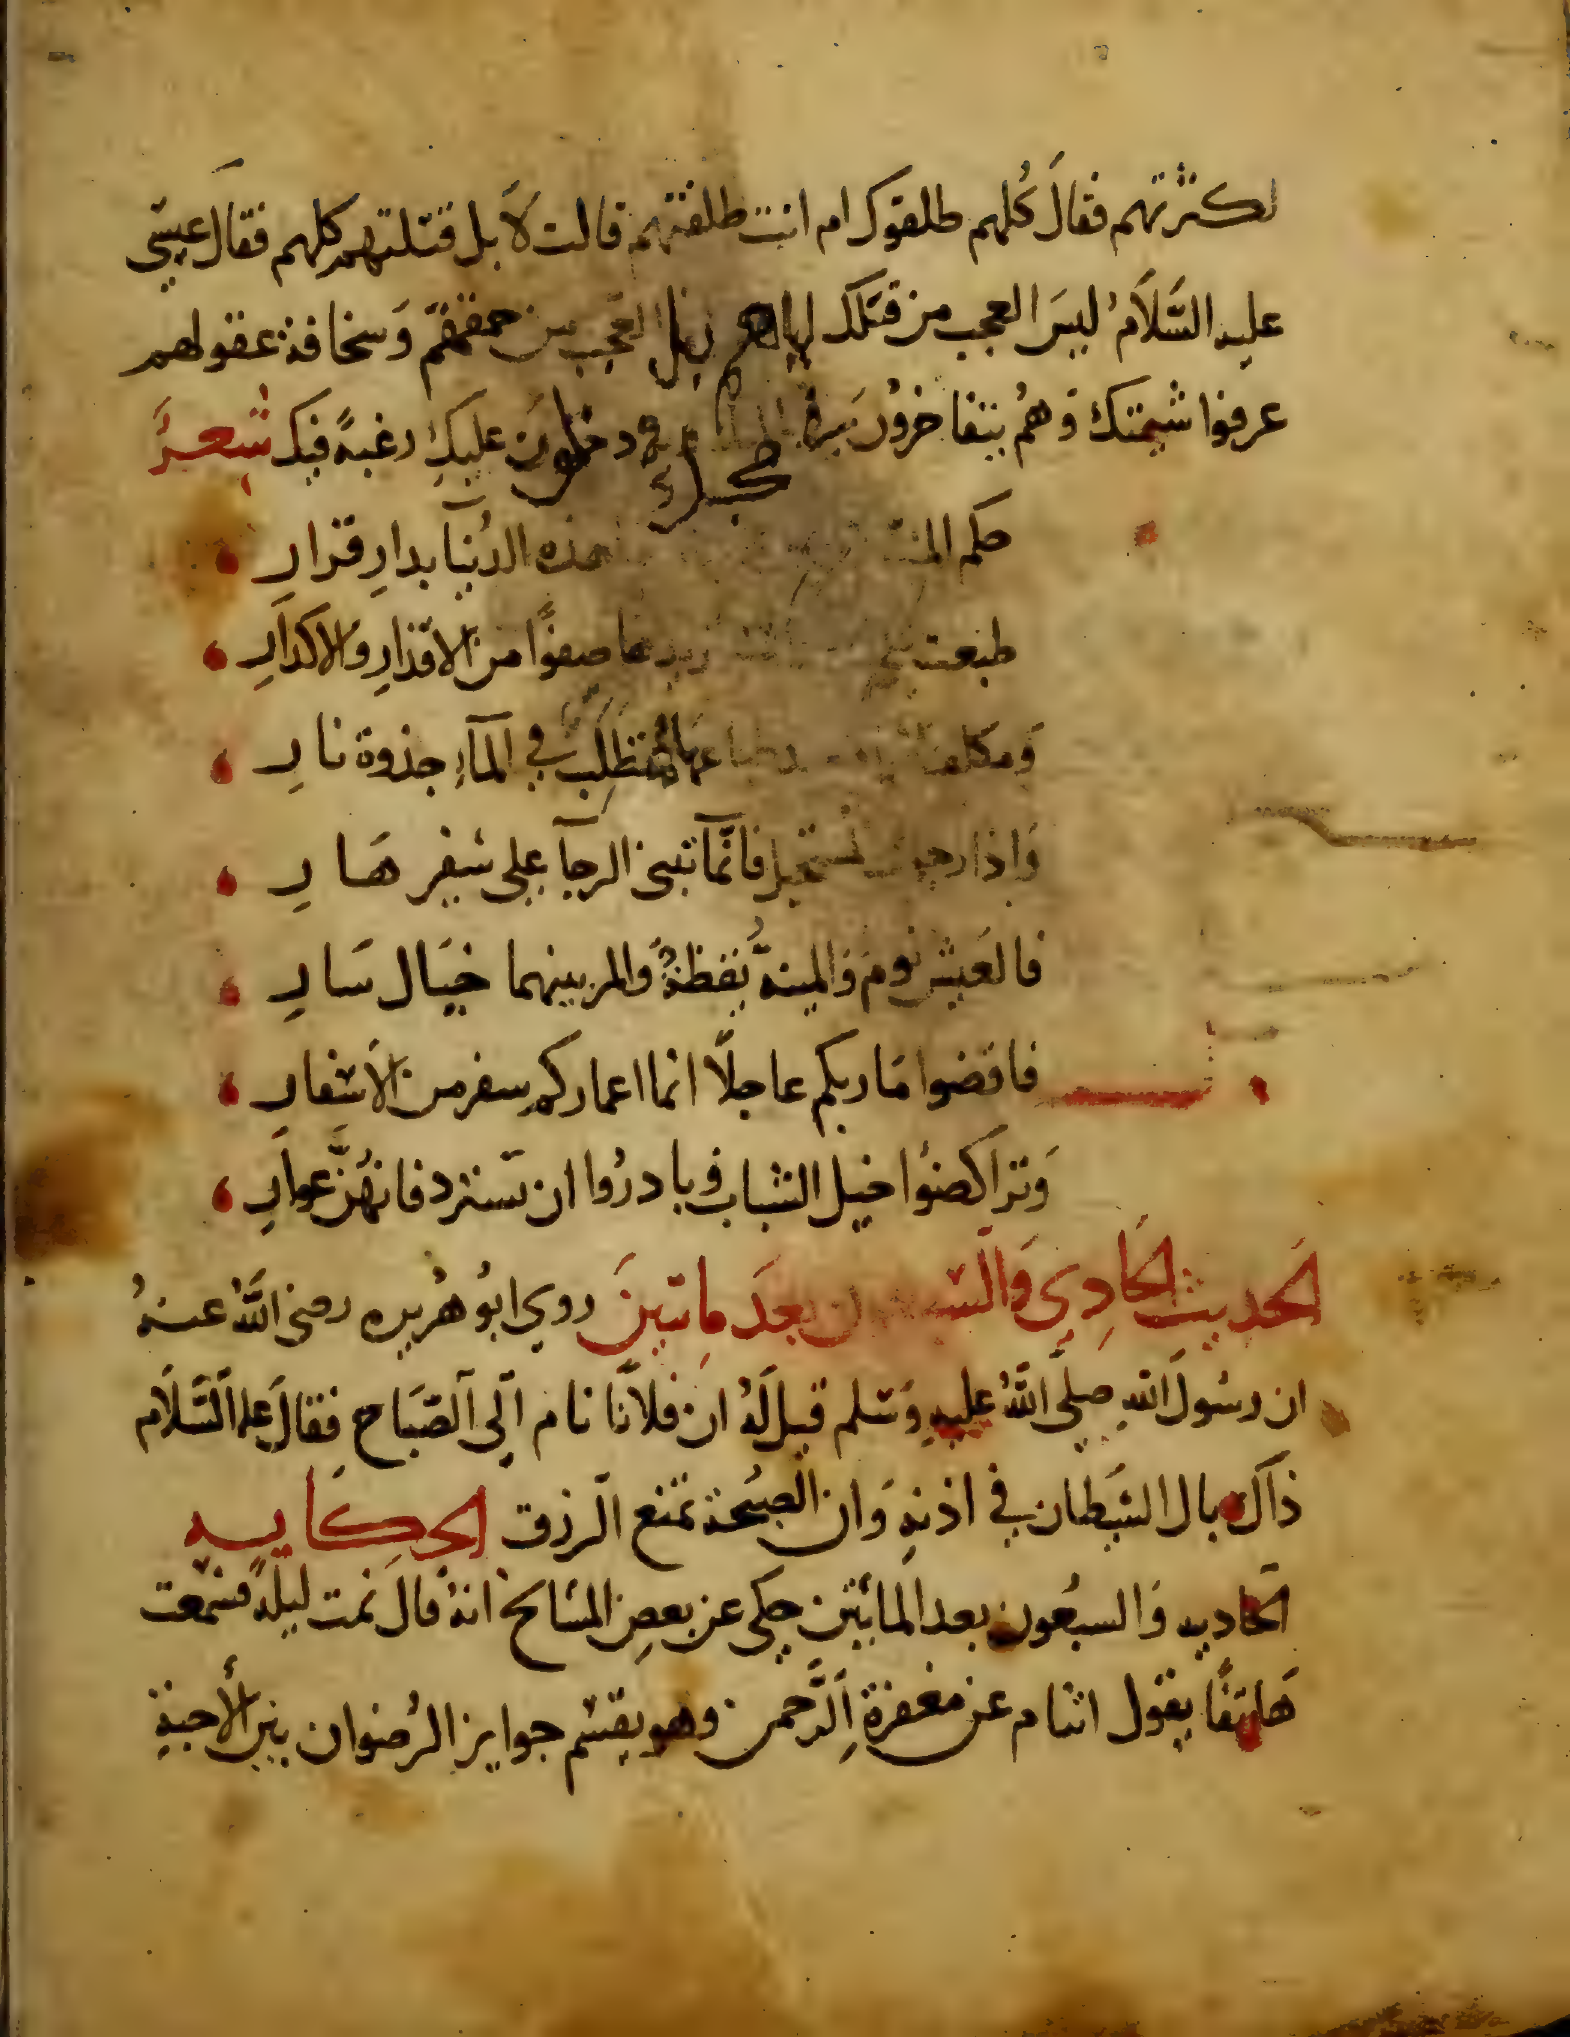 لكثرتهم فقالَ كُلهم طلقوك ام انت طلقتهم قالت لَا بل قتلتهم كلهم فقال عيسَى
عليه السَّلَامُ ليسَ العجب من قتلك اياهم بل العجب من حمقهم وَسخافة عقولهم
عرفوا شيمتك وَهُم يتفاخرُون دخلون عليكِ رغبةً فيك شعرٌ
حكم هذه الدُنيآ بدارِ قرارِ
طبعت صفوًا من الاقذارِ والاكدَارِ
وَمكلف طباعها متطلِب في المآءِ جذوة نارِ
وَاذا رجوت المستحيل فانّمآ تبنى الرجآ على شفير هَارِ
فالعَيش نوم وَالمنيةُ يقظةٌ والمر بينهما خيَال سَارِ
فاقضوا مَاربكم عاجلًا انما اعماركم سفر من الاَسْفارِ
وَتراكضوُا خيل الشباب وبادرُوا ان تسترد فانهُنَّ عوارِ
الحَديث الحَادِي وَالسبعون بعدَ مِاتينَ روي ابُو هُريره رضى اللَّهُ عنهُ
ان رسُولَ اللهِ صلىَّ اللَّهُ عليهِ وَسَلم قيل لَهُ ان فلانًا نام الَى الصَّبَاح فقالَ عليه السَّلَام
ذَاك بال الشَيطان في اذنهِ وَان الصُبْحة تمنع الَرزق الحِكَايه
الحَاديه وَالسبعُون بعد المأتين حكي عن بعضِ المشايخ انهُ قال نمت ليلةً فسمعت
هَاتفًا يقول اتنام عن مغفرةِ الرَّحمن وهو يقسم جوايز الرُضوان بين الأحبةِ